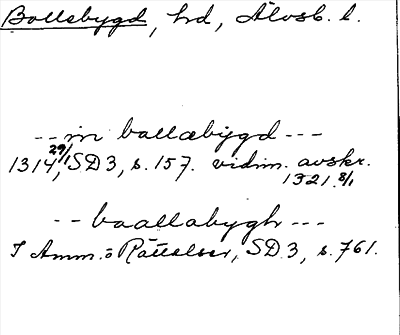 Bollebygd, hd, Älvsb. l.
-- in ballæbygd ---
1314 29/1, SD 3, s. 157. vidim. avskr.
1321 8/1
-- baallabygh ---
I Amm. o Rättelser, SD 3, s. 761.